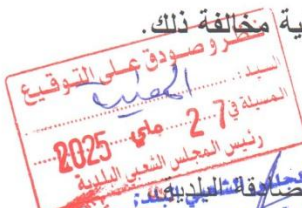 ية مخالفة ذلك.
نظر و صودق على التوقيع
السيد:
المسيلة في 27 ماي 2025
رئيس المجلس الشعبي البلدية
البلدية